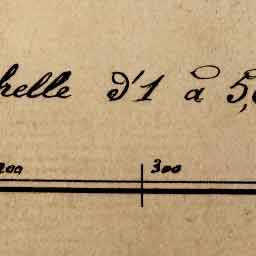 helle d'1 à 5,
200 300